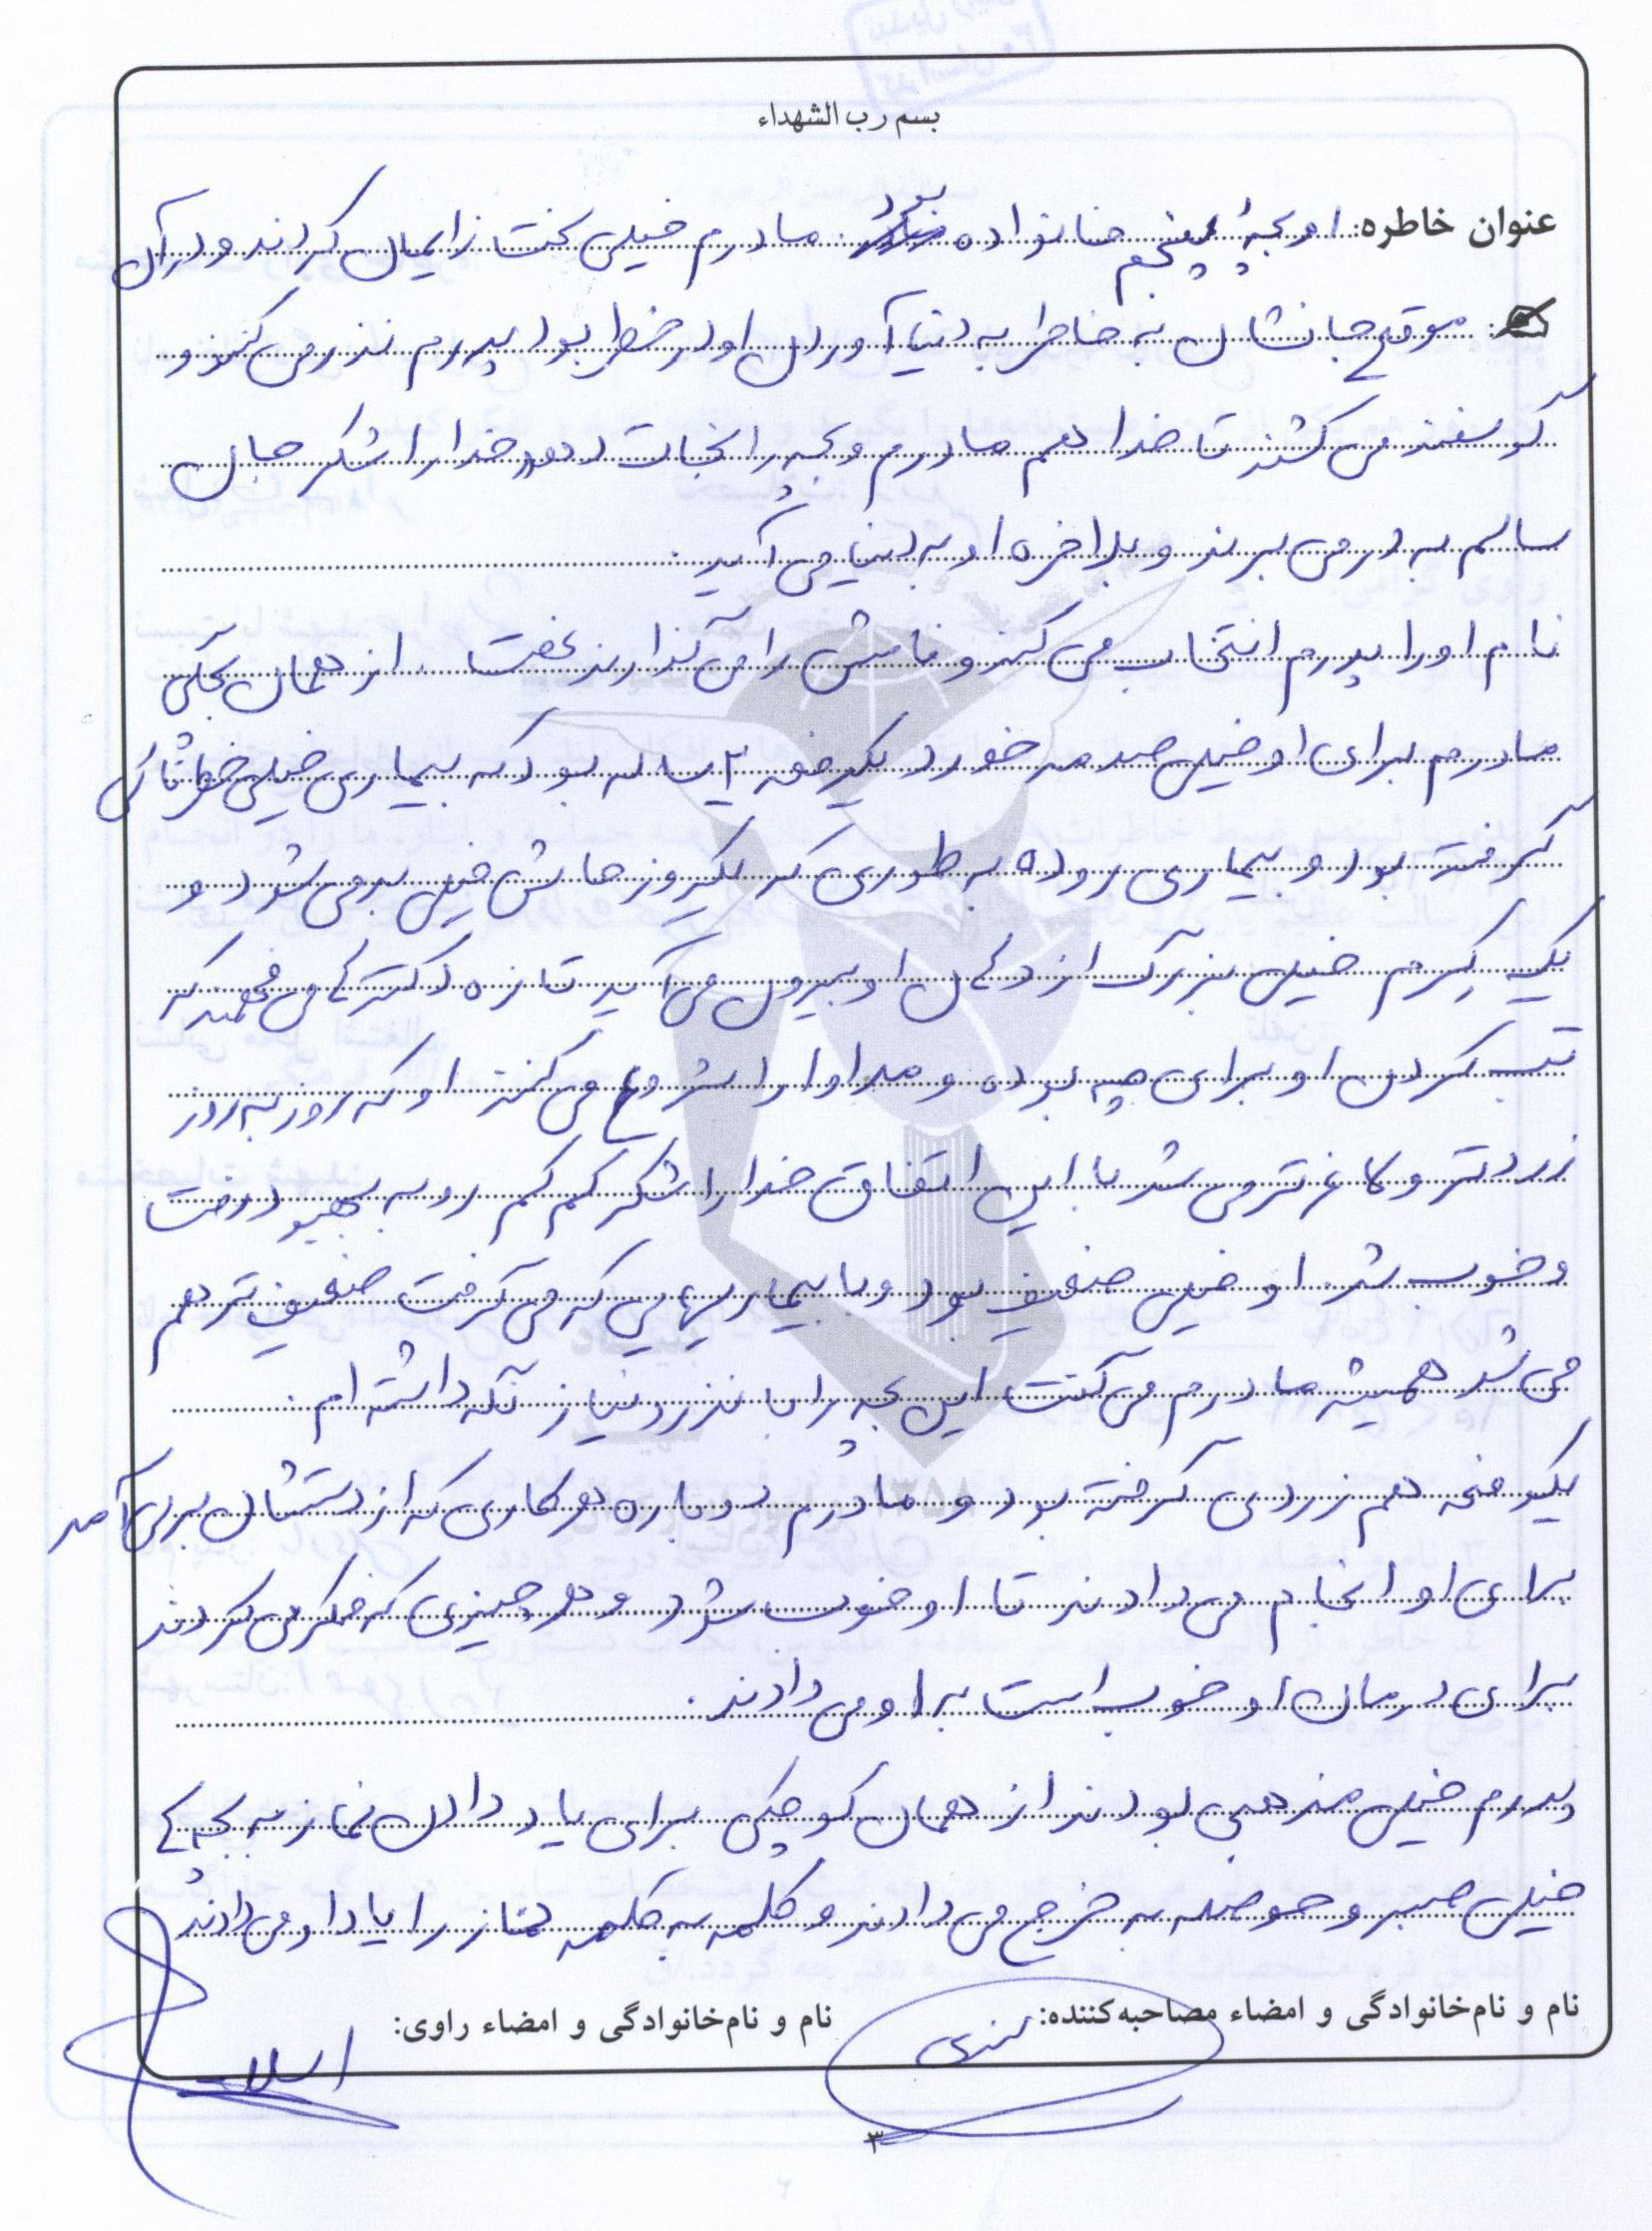 بسم رب الشهداء
عنوان خاطره: او بچهٔ پنجم خانواده بود. مادرم خیلی سخت زایمان کردند و در آن
موقع جانشان به خاطر به دنیا آوردن او در خطر بود پدرم نذر می کنند و
گوسفند می کشند تا خدا هم مادرم و بچه را نجات دهد خدا را شکر جان
سالم به در می برند و بلاخره او به دنیا می آید.
نام او را پدرم انتخاب می کند و نامش را می گذارند عفت. از همان بچگی
مادرم برای او خیلی صدمه خورد یکدفعه ۲ ساله بود که بیماری خیلی خطرناکی
گرفته بود و بیماری روده به طوری که یکروز حالش خیلی بد می شود و
یک کِرم خیلی بزرگ از دهان او بیرون می آید تازه دکترها می فهمند که
تب کردن او برای چه بوده و مداوا را شروع می کنند او که روز به روز
زردتر و لاغرتر می شد با این اتفاق خدا را شکر کم کم رو به بهبود رفت
و خوب شد. او خیلی ضعیف بود و با بیماریهایی که می گرفت ضعیف تر هم
می شد همیشه مادرم می گفت این بچه را با نذر و نیاز نگه داشته ام.
یکدفعه هم زردی گرفته بود و مادرم دوباره هر کاری که از دستشان بر می آمد
برای او انجام می دادند تا او خوب شود و هر چیزی که فکر می کردند
برای درمان او خوب است به او می دادند.
پدرم خیلی مذهبی بودند از همان کوچکی برای یاد دادن نماز به بچه ها
خیلی صبر و حوصله به خرج می دادند و کلمه به کلمه نماز را یاد او می دادند
نام و نام‌خانوادگی و امضاء مصاحبه‌کننده:
نام و نام‌خانوادگی و امضاء راوی:
۳